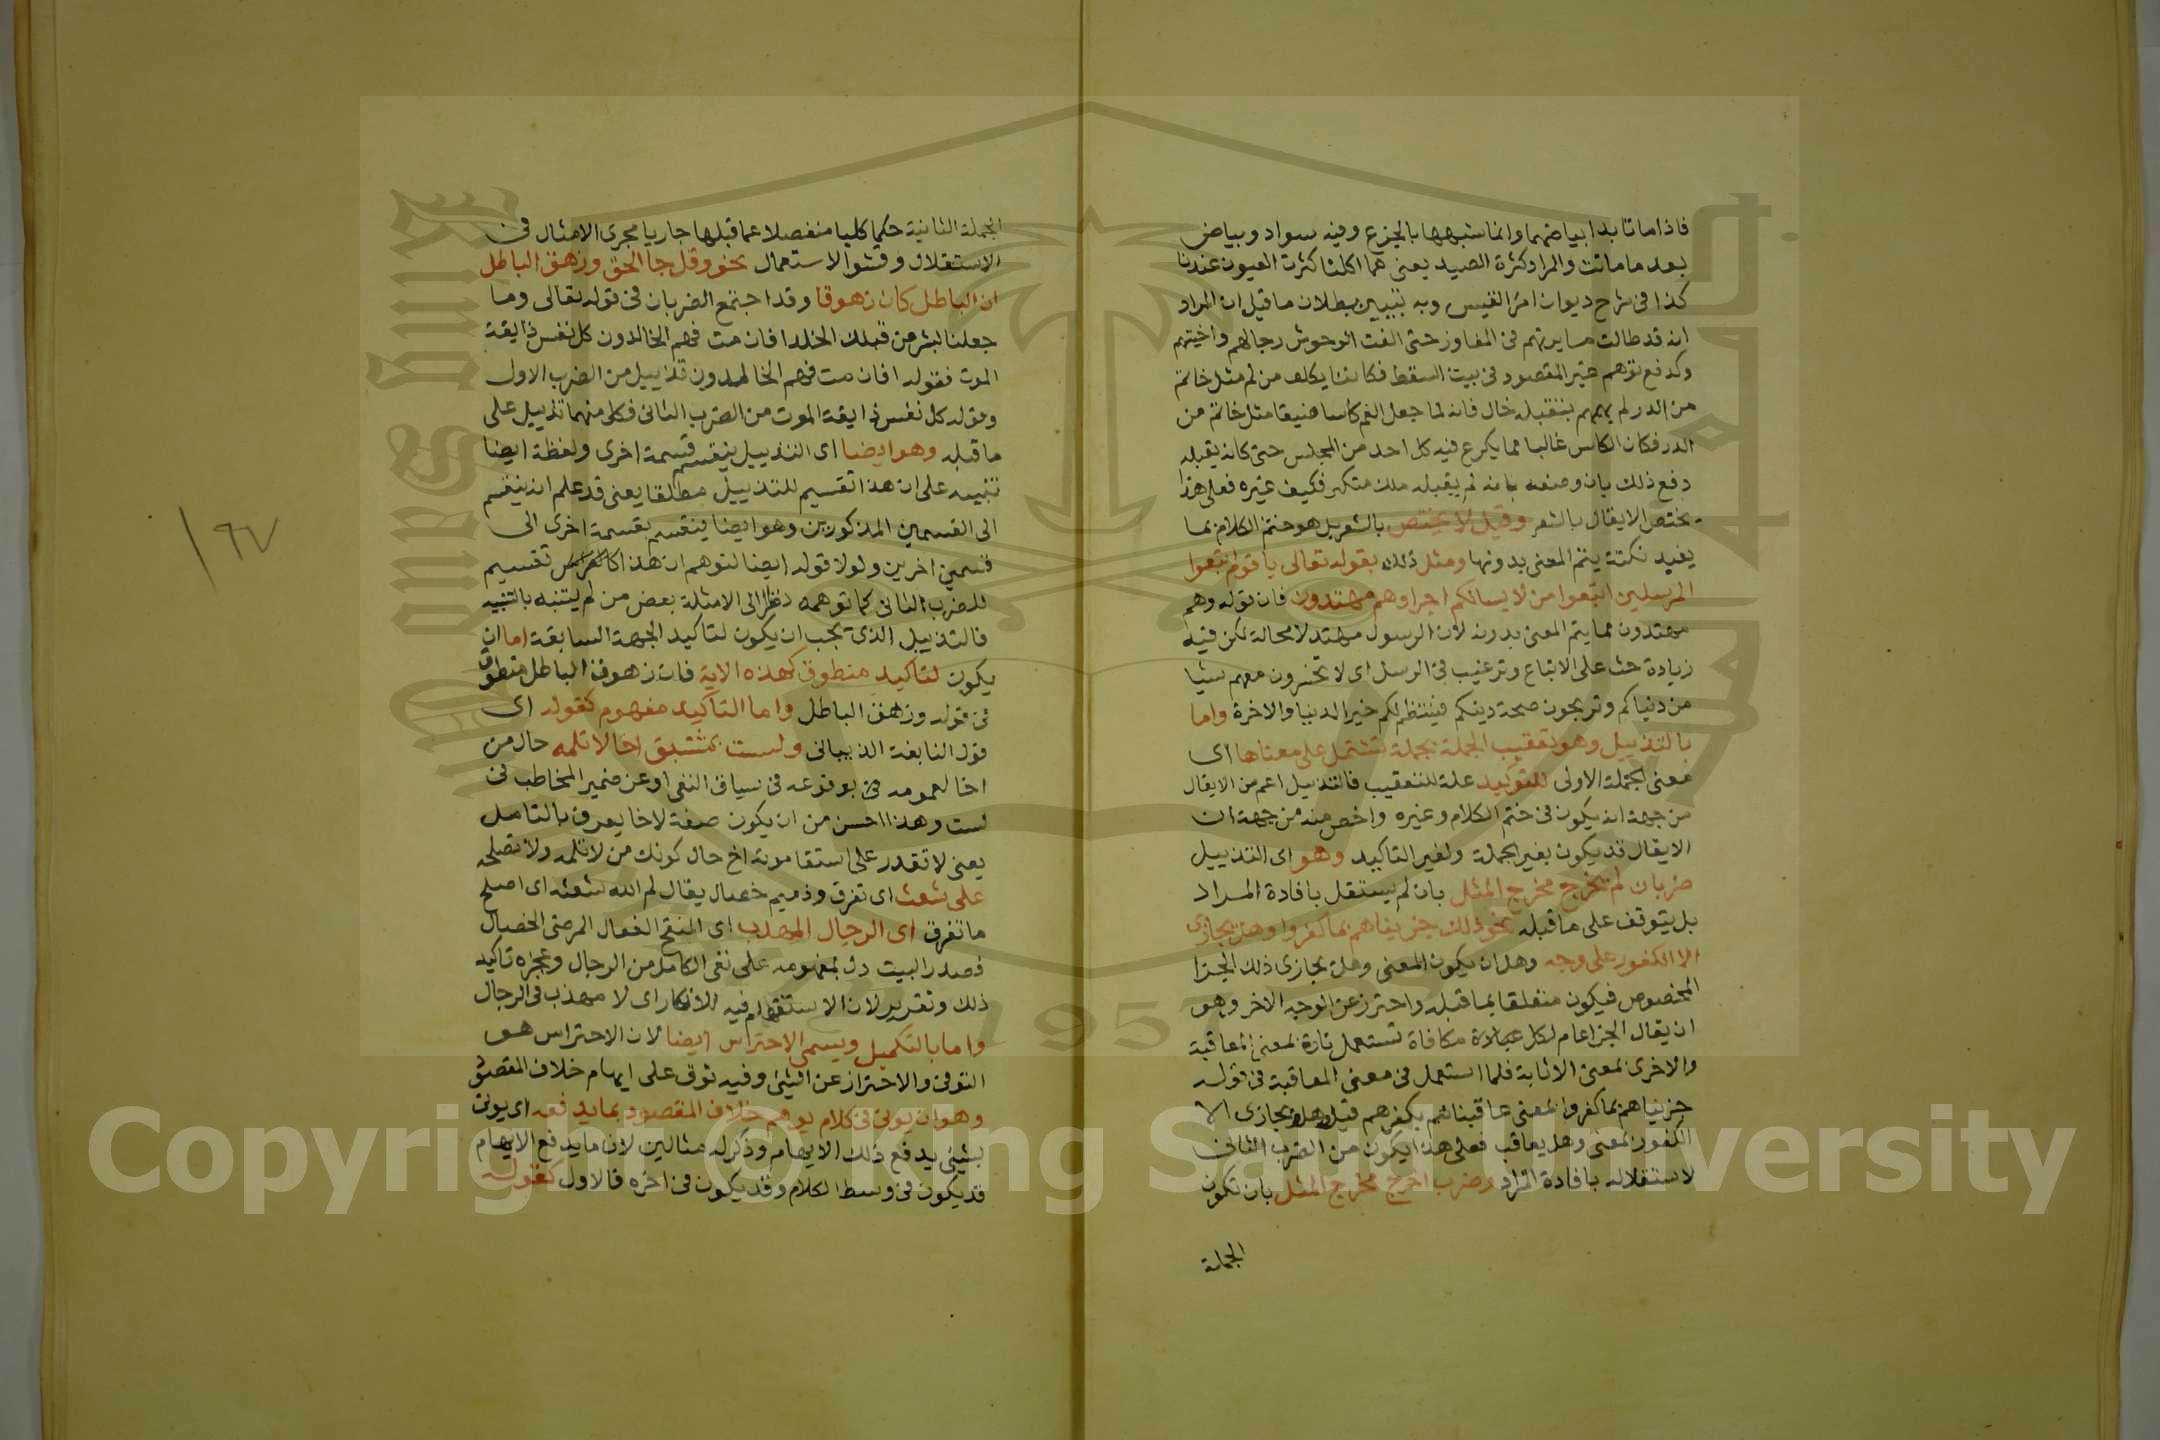 فاذا ماتا بدا بياضهما وانما شبهها بالجزع وفيه سواد وبياض
بعد ما ماتت والمراد كثرة الصيد يعنى مما اكلنا كثرت العيون عندنا
كذا فى شرح ديوان امرؤ القيس وبه يتبين بطلان ما قيل ان المراد
انه قد طالت مسايرتهم فى المفاوز حتى الفت الوحوش رحالهم واخبيتهم
وكدفع توهم غير المقصود فى بيت السقط فكاننا يكلف من لم مثل خاتم
من الدر لم يهمم بتقبيله خال فانه لما جعل الفم كاسا ضيقا مثل خاتم من
الدر فكان الكاس غالبا مما يكرع فيه كل احد من المجلس حتى كانه يقبله
دفع ذلك بان وصفه بانه لم يقبله ملك متكبر فكيف غيره فعلى هذا
يختص الايغال بالشعر وقيل لا يختص بالشعر بل هو ختم الكلام بما
يفيد نكتة يتم المعنى بدونها ومثل ذلك بقوله تعالى يا قوم اتبعوا
المرسلين اتبعوا من لا يسالكم اجرا وهم مهتدون فان قوله وهم
مهتدون مما يتم المعنى بدونه لان الرسول مهتد لا محالة لكن فيه
زيادة حث على الاتباع وترغيب فى الرسل اى لا تخسرون معهم شيا
من دنياكم وتربحون صحة دينكم فينتظم لكم خير الدنيا والاخرة واما
بالتذييل وهو تعقيب الجملة بجملة تشتمل على معناها اى
معنى الجملة الاولى للتوكيد علة للتعقيب فالتذييل اعم من الايغال
من جهة انه يكون فى ختم الكلام وغيره واخص منه من جهة ان
الايغال قد يكون بغير الجملة ولغير التاكيد وهو اى التذييل
ضربان لم يخرج مخرج المثل بان لم يستقل بافادة المراد
بل يتوقف على ما قبله نحو ذلك جزيناهم بما كفروا وهل يجازى
الا الكفور على وجه وهو ان يكون المعنى وهل يجازى ذلك الجزا
المخصوص فيكون متعلقا بما قبله واحترز عن الوجه الاخر وهو
ان يقال الجزا عام لكل مكافاة تستعمل تارة بمعنى المعاقبة
والاخرى بمعنى الاثابة فلما استعمل فى معنى المعاقبة فى قوله
جزيناهم بما كفروا بمعنى عاقبناهم بكفرهم قيل وهل يجازى الا
الكفور بمعنى وهل يعاقب فعلى هذا يكون من الضرب الثانى
لاستقلاله بافادة المراد وضرب اخرج مخرج المثل بان تكون
الجملة
الجملة الثانية حكما كليا منفصلا عما قبلها جاريا مجرى الامثال فى
الاستقلال وفشو الاستعمال نحو وقل جا الحق وزهق الباطل
ان الباطل كان زهوقا وقد اجتمع الضربان فى قوله تعالى وما
جعلنا لبشر من قبلك الخلد افان مت فهم الخالدون كل نفس ذايقة
الموت فقوله افان مت فهم الخالدون تذييل من الضرب الاول
وقوله كل نفس ذايقة الموت من الضرب الثانى فكل منهما تذييل على
ما قبله وهو ايضا اى التذييل ينقسم قسمة اخرى ولفظة ايضا
تنبيه على ان هذا تقسيم للتذييل مطلقا يعنى قد علم انه ينقسم
الى القسمين المذكورين وهو ايضا ينقسم بقسمة اخرى الى
قسمين اخرين ولولا قوله ايضا لتوهم ان هذا تقسيم
للضرب الثانى كما توهمه نظرا الى الامثلة بعض من لم يتنبه بالتنبيه
فالتذييل الذى يجب ان يكون لتاكيد الجهة السابقة اما ان
يكون لتاكيد منطوق كهذه الاية فان زهوق الباطل منطوق
فى قوله وزهق الباطل واما التاكيد مفهوم كقوله اى
قول النابغة الذبيانى ولست بمستبق اخا لا تلمه حال من
اخا لعمومه بوقوعه فى سياق النفى او عن ضمير المخاطب فى
لست وهذا احسن من ان يكون صفة لاخا يعرف بالتامل
يعنى لا تقدر على استقا مودة اخ حال كونك من لا تلمه ولا تصلحه
على شعث اى تفرق وذميم خصال يقال لم الله شعثه اى اصلح
ما تفرق اى الرجال المهذب اى المنقح الفعال المرضى الخصال
فصدر البيت دل بمفهومه على نفى الكامل من الرجال وعجزه تاكيد
ذلك وتقرير لان الاستفهام فيه للانكار اى لا مهذب فى الرجال
واما بالتكميل ويسمى الاحتراس ايضا لان الاحتراس هو
التوقى والاحتراز عن الشئ وفيه توق على ايهام خلاف المقصود
وهو ان يوتى فى كلام يوهم خلاف المقصود بما يدفعه اى يوتى
بشئ يدفع ذلك الايهام وذكر له مثالين لان ما يدفع الايهام
قد يكون فى وسط الكلام وقد يكون فى اخره فالاول كقوله
١٦٧
Copyright © King Saud University
1957